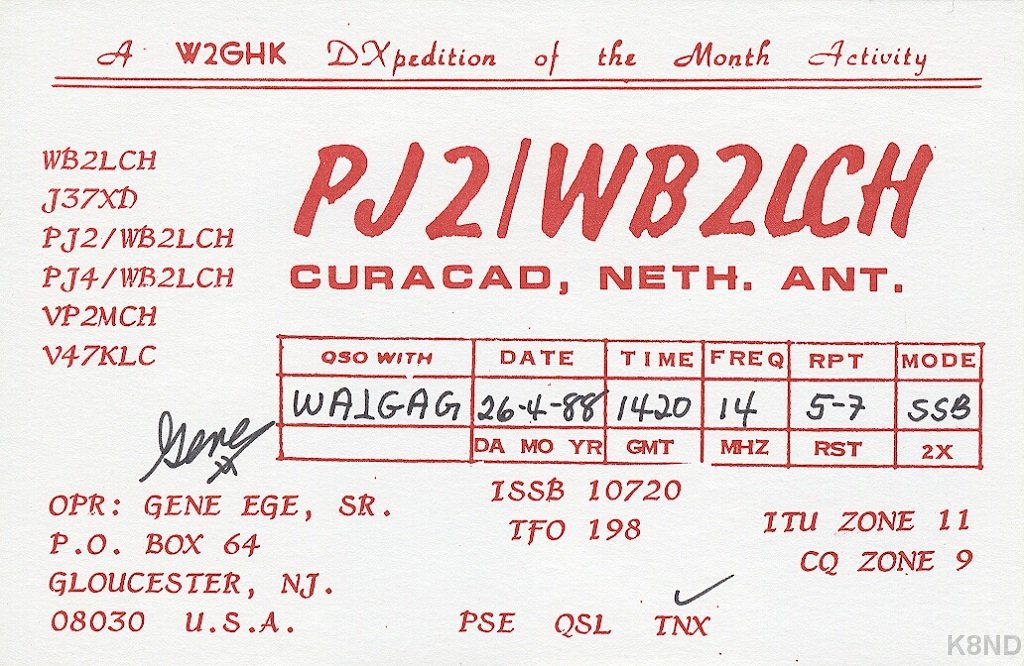 A W2GHK DXpedition of the Month Activity
WB2LCH
J37XD
PJ2/WB2LCH
PJ4/WB2LCH
VP2MCH
V47KLC
PJ2/WB2LCH
CURACAD, NETH. ANT.
QSO WITH DATE TIME FREQ RPT MODE
WA1GAG 26-4-88 1420 14 5-7 SSB
DA MO YR GMT MHZ RST 2X
Gene
OPR: GENE EGE, SR.
P.O. BOX 64
GLOUCESTER, NJ.
08030 U.S.A.
ISSB 10720
TFO 198
ITU ZONE 11
CQ ZONE 9
PSE QSL TNX
K8ND